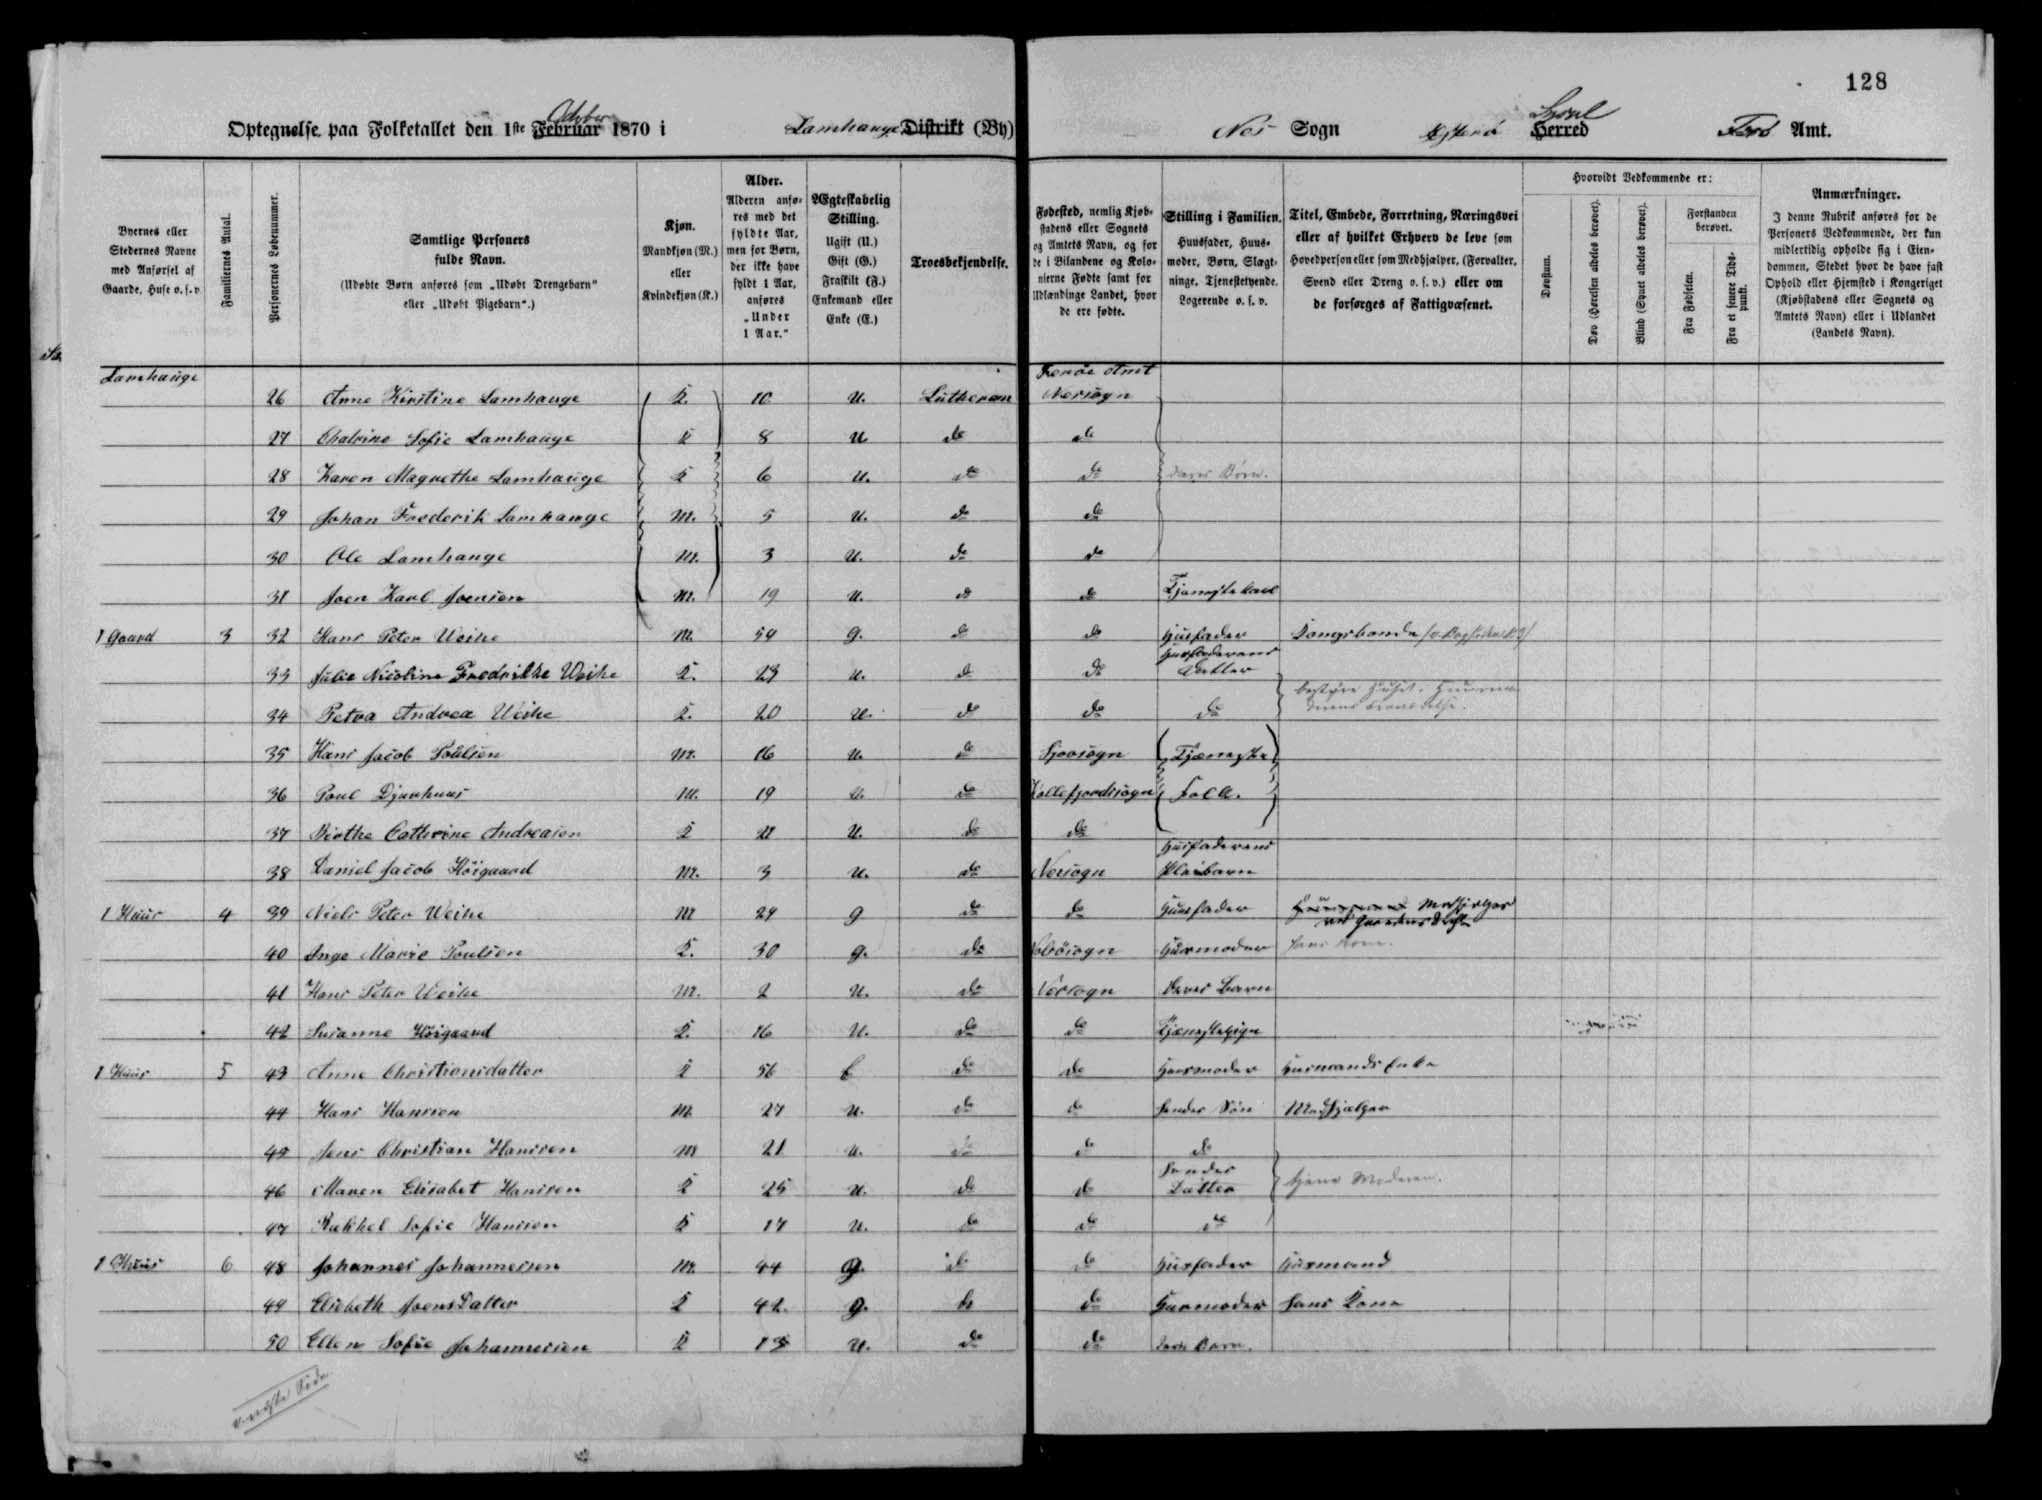 128
Optegnelse paa Folketallet den 1ste Februar October 1870 i Lamhauge Distrikt (By)
Nes Sogn Østerø Herred Syssel Færø Amt.
Byernes eller Stedernes Navne med Anførsel af Gaarde, Huse o. s. v.
Familiernes Antal.
Personernes Løbenummer.
Samtlige Personers fulde Navn.
(Udøbte Børn anføres som „Udøbt Drengebarn" eller „Udøbt Pigebarn".)
Kjøn.
Mandkjøn (M.) eller Kvindekjøn (K.)
Alder.
Alderen anføres med det fyldte Aar, men for Børn, der ikke have fyldt 1 Aar, anføres „Under 1 Aar."
Ægteskabelig Stilling.
Ugift (U.) Gift (G.) Fraskilt (F.) Enkemand eller Enke (E.)
Troesbekjendelse.
Fødested, nemlig Kjøbstadens eller Sognets og Amtets Navn, og for de i Bilandene og Kolonierne Fødte samt for Udlændinge Landet, hvor de ere fødte.
Stilling i Familien.
Huusfader, Huusmoder, Børn, Slægtninge, Tjenestetyende, Logerende o. s. v.
Titel, Embede, Forretning, Næringsvei eller af hvilket Erhverv de leve som Hovedperson eller som Medhjælper, (Forvalter, Svend eller Dreng o. s. v.) eller om de forsørges af Fattigvæsenet.
Hvorvidt Vedkommende er:
Døvstum.
Døv (Hørelsen aldeles berøvet).
Blind (Synet aldeles berøvet).
Forstanden berøvet.
Fra Fødselen.
Fra et senere Tidspunkt.
Anmærkninger.
I denne Rubrik anføres for de Personers Vedkommende, der kun midlertidig opholde sig i Eiendommen, Stedet hvor de have fast Ophold eller Hjemsted i Kongeriget (Kjøbstadens eller Sognets og Amtets Navn) eller i Udlandet (Landets Navn).
Lamhauge Færöe Amt
26 Anne Kirstine Lamhauge K. 10 U. Lutheran Nessogn
27 Chatrine Sofie Lamhauge K 8 U do do
28 Karen Magrethe Lamhauge K 6 U. do do deres Börn.
29 Johan Frederik Lamhauge M. 5 U. do do
30 Ole Lamhauge M. 3 U. do do
31 Joen Karl Joensen M. 19 U. do do Tjenestekarl
1 Gaard 3 32 Hans Peter Weihe M. 54 G. do do Husfader Kongsbonde
33 Julie Nicoline Fredrikke Weihe K. 23 U. do do Husfaderens Datter
34 Petra Andrea Weihe K. 20 U. do do do
35 Hans Jacob Poulsen M. 16 U. do Sjovsogn Tjeneste
36 Poul Djurhuus M. 19 U. do Kollefjordsogn Folk.
37 Birthe Cathrine Andreasen K U. do do
38 Daniel Jacob Höigaard M. 3 U. do Nessogn Husfaderens Pleiebarn
1 Huus 4 39 Niels Peter Weihe M 24 G do do Husfader
40 Inge Marie Poulsen K. 30 G. do Husmoder hans Kone.
41 Hans Peter Weihe M. 2 U. do Nessogn Deres Barn
42 Susanne Höigaard K. 16 U. do do Tjenestepige
1 Huus 5 43 Anne Christiansdatter K 56 E do do Husmoder Husmands Enke
44 Hans Hansen M. 27 U. do do hendes Sön Medhjælper
45 Jens Christian Hansen M 21 U. do do do
46 Maren Elisabet Hansen K 25 U. do do hendes Datter tjener Moderen.
47 Rakkel Sofie Hansen K 17 U. do do do
1 Huus 6 48 Johannes Johannesen M. 44 G. do do Husfader Husmand
49 Elsebeth JoensDatter K 42 G. do do Husmoder hans Kone
50 Ellen Sofie Johannesen K 13 U. do do deres Barn.
v. næste Side